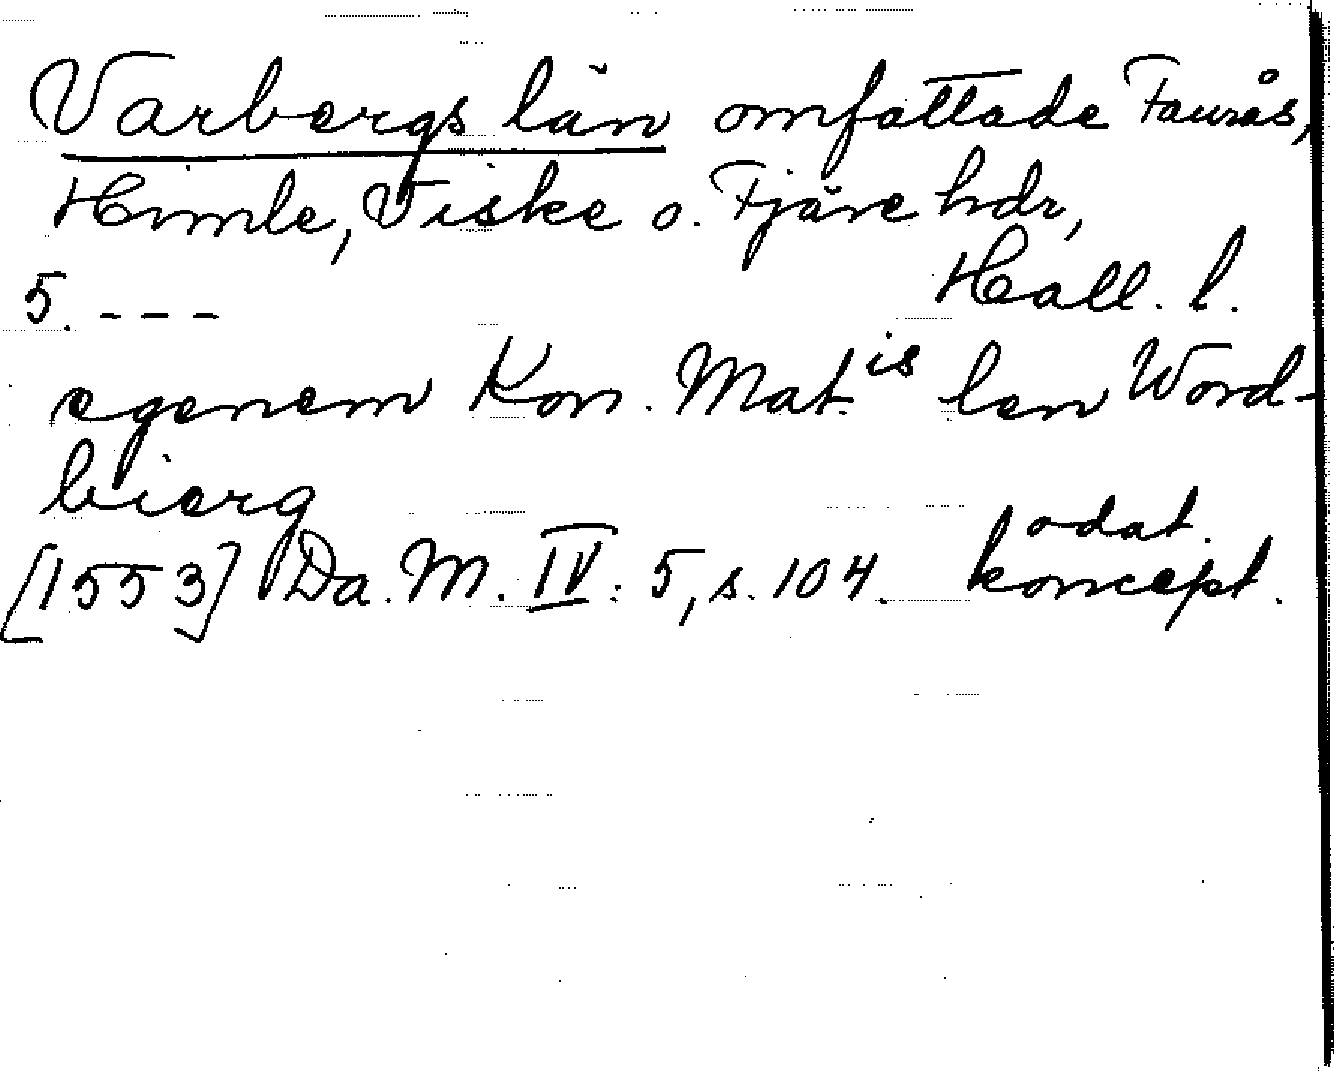 Varbergs län omfattade Faurås,
Himle, Viske o. Fjäre hdr,
Hall. l.
5. - - -
egenem Kon. Mat.is len Word-
bierg
[1553] Da. M. IV: 5, s. 104. odat. koncept.